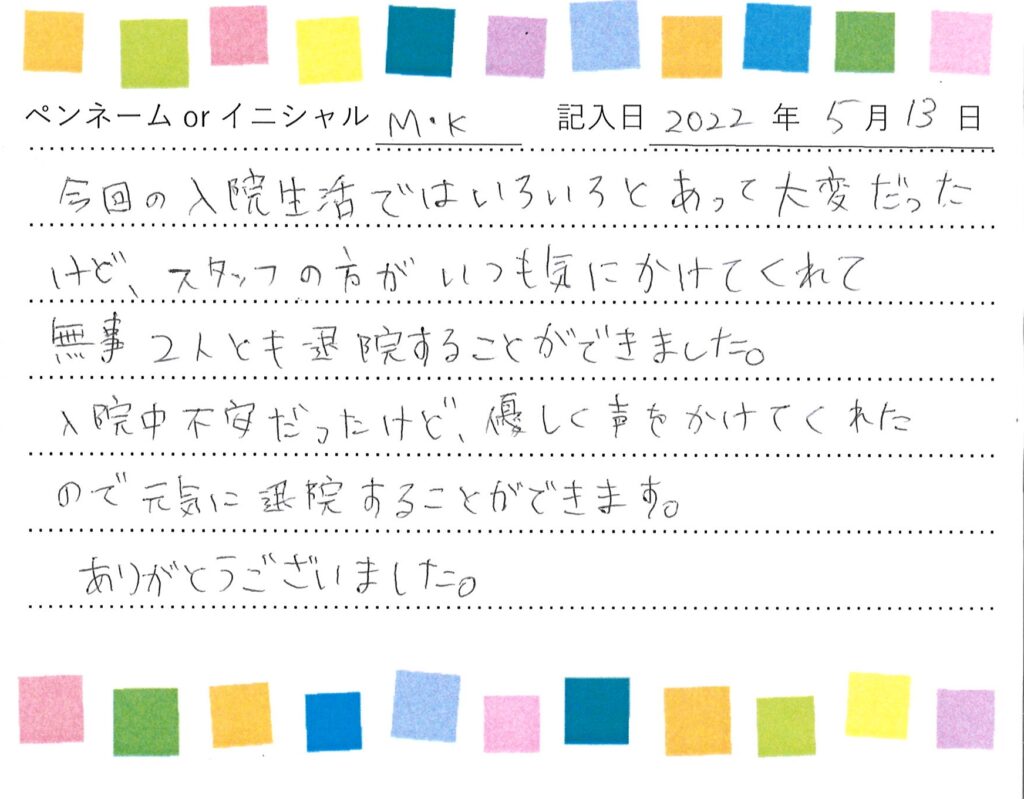 ペンネーム or イニシャル M・K 記入日 2022 年 5 月 13 日
今回の入院生活ではいろいろとあって大変だった
けど、スタッフの方がいつも気にかけてくれて
無事2人とも退院することができました。
入院中不安だったけど、優しく声をかけてくれた
ので元気に退院することができます。
ありがとうございました。